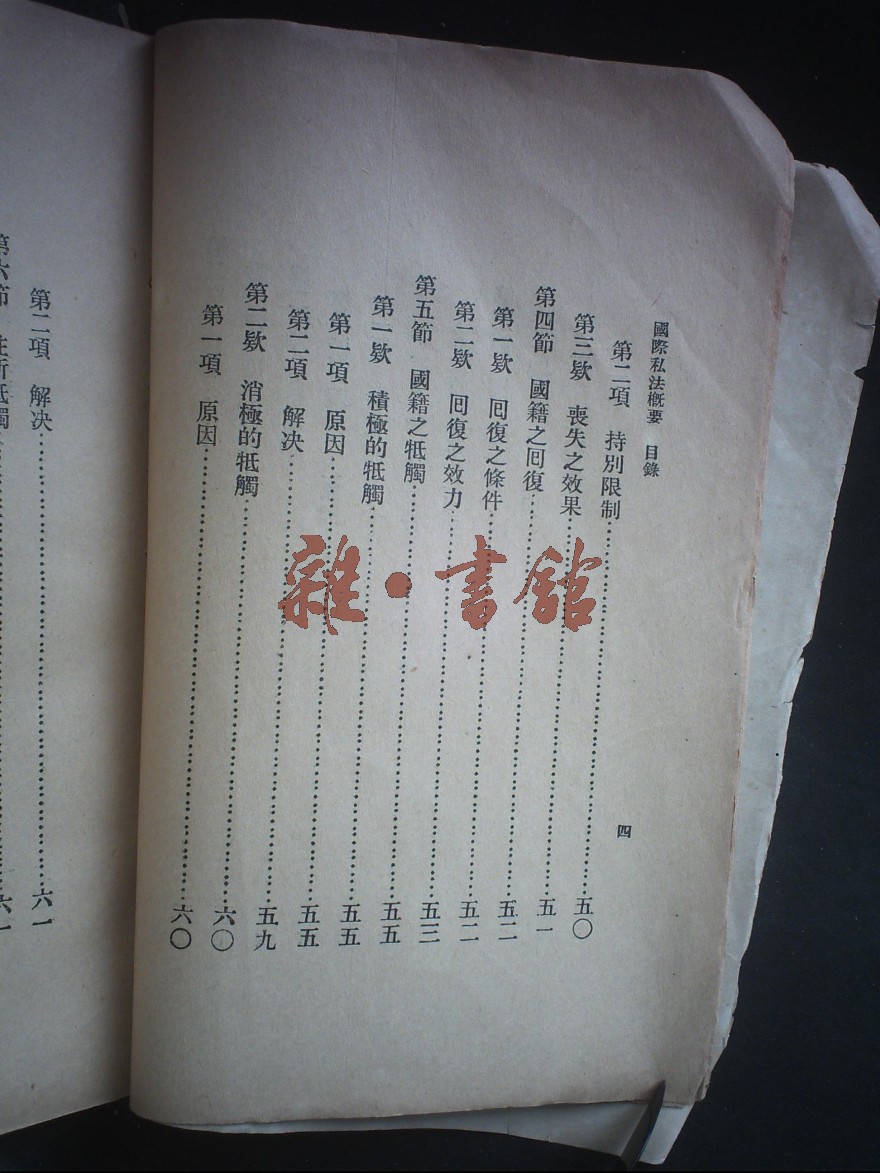 國際私法概要 目錄 四
第二項 持別限制⋯⋯⋯⋯五〇
第三欵 喪失之效果⋯⋯⋯⋯五一
第四節 國籍之囘復⋯⋯⋯⋯五二
第一欵 囘復之條件⋯⋯⋯⋯五二
第二欵 囘復之效力⋯⋯⋯⋯五三
第五節 國籍之牴觸⋯⋯⋯⋯五五
第一欵 積極的牴觸⋯⋯⋯⋯五五
第一項 原因⋯⋯⋯⋯五五
第二項 解决⋯⋯⋯⋯五九
第二欵 消極的牴觸⋯⋯⋯⋯六〇
第一項 原因⋯⋯⋯⋯六〇
第二項 解决⋯⋯⋯⋯六一
雜·書館